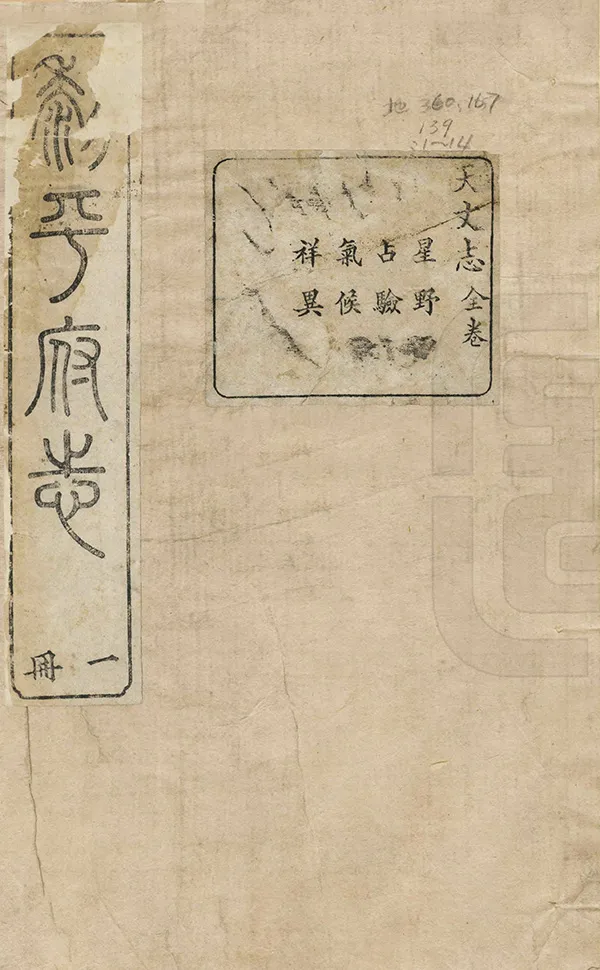 地 360.167
139
:1~14
天文志全卷
星野
占驗
氣候
祥異
泰平府志
一冊